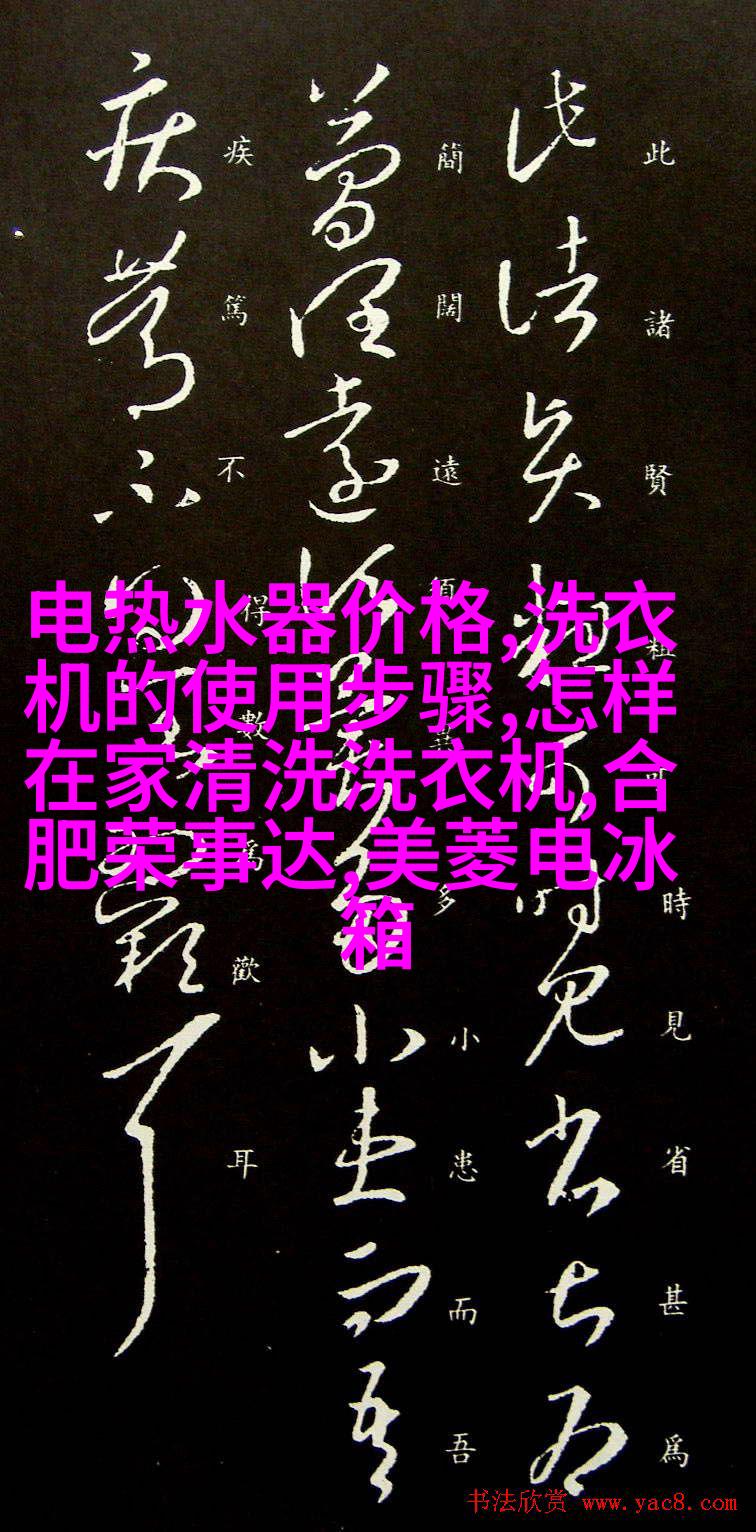 此諸賢粗可時見省甚為
簡闊遠須異多小患而吾
疾篤不得數為歡耳
电热水器价格,洗衣
机的使用步骤,怎样
在家清洗洗衣机,合
肥荣事达,美菱电冰
箱
书法欣赏 www.yac8.com